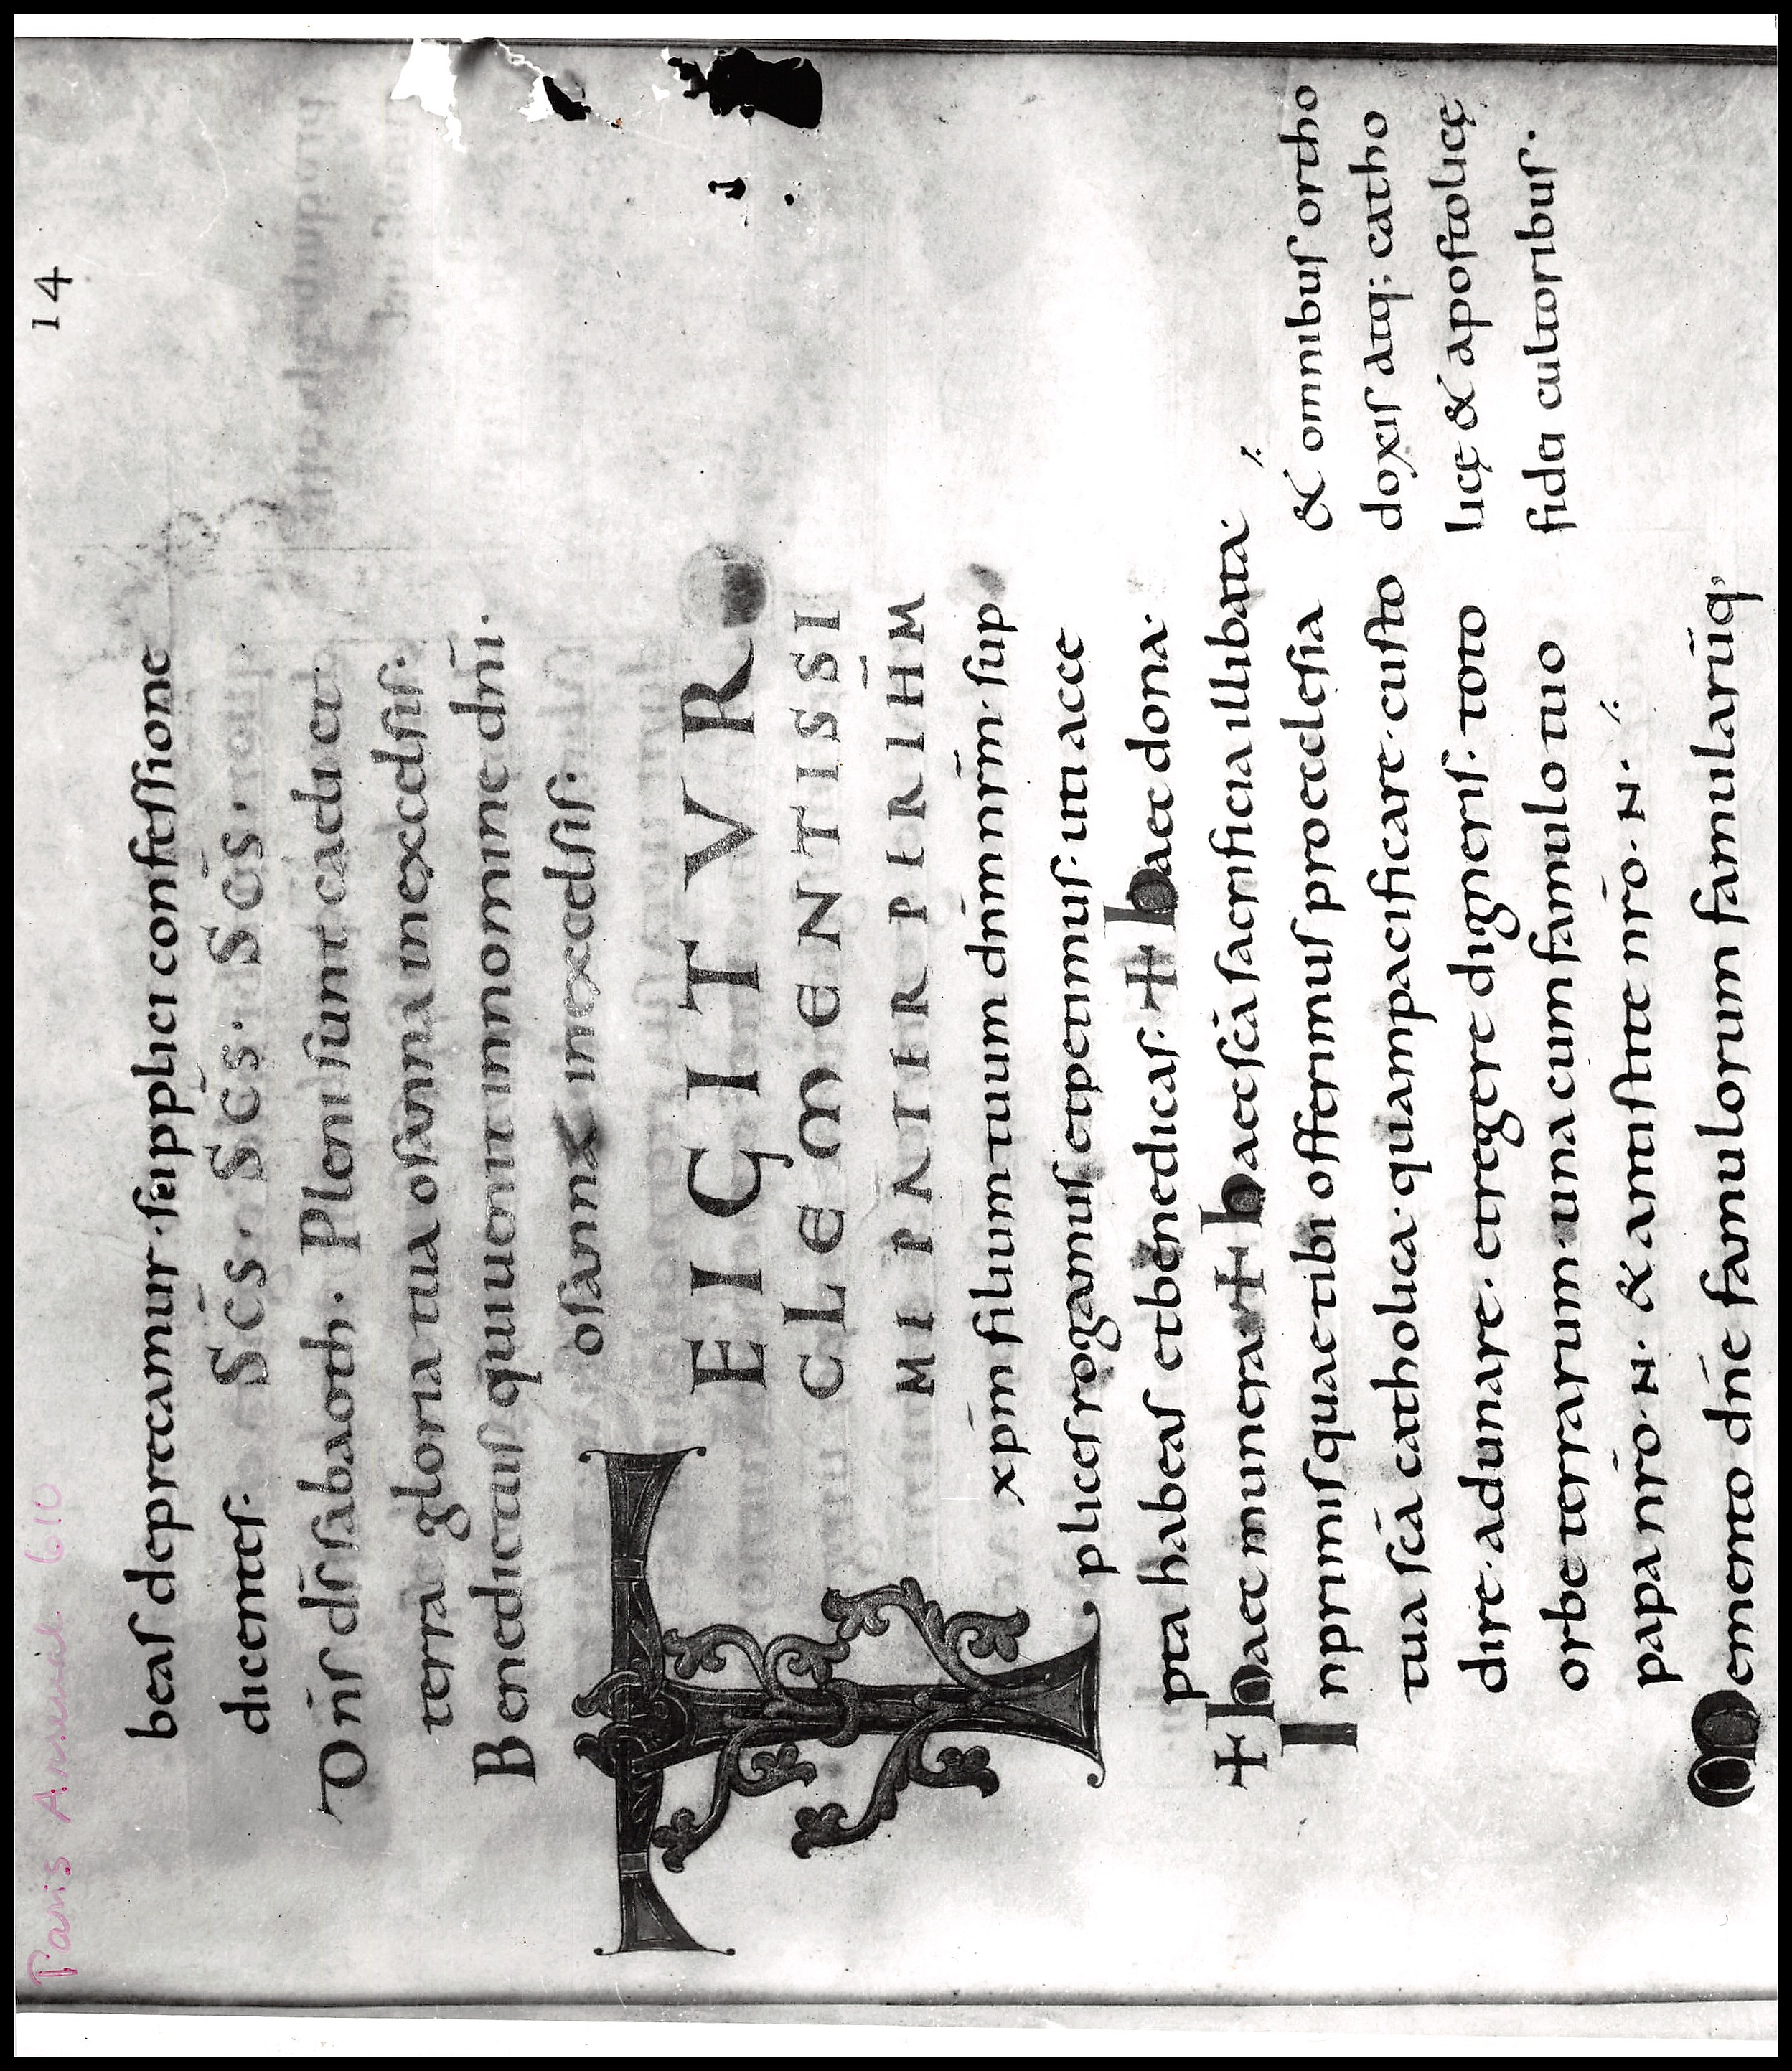 Paris Arsenal 610
14
beas deprecamur · supplici confessione
dicentes. Sc̄s. Sc̄s. Sc̄s.
Dn̄s ds̄ sabaoth. Pleni sunt caeli et
terra gloria tua osanna in excelsis.
Benedictus qui uenit in nomine dn̄i.
osanna in excelsis.
TE IGITVR
CLEMENTISSI
MI PATER PER IHM̄
xp̄m filium tuum dn̄m nr̄m · sup
plices rogamus et petimus · uti acce
pta habeas et benedicas. + haec dona ·
+ haec munera + haec sc̄a sacrificia illibata ·/.
In primis quae tibi offerimus pro ecclesia
tua sc̄a catholica · quam pacificare · custo
dire · adunare · et regere digneris · toto
orbe terrarum · una cum famulo tuo
papa nr̄o · N · & antistite nr̄o · N · /.
Memento dn̄e famulorum famularūq;
& omnibus ortho
doxis atq; catho
licę & apostolicę
fidei cultoribus.